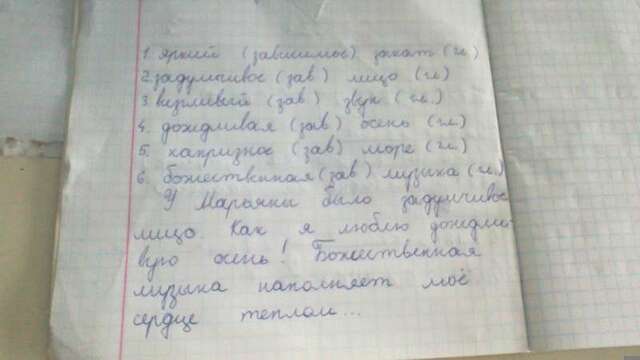 1. яркий (зависимое) закат (гл.)
2. задумчивое (зав) лицо (гл.)
3. визгливый (зав) звук (гл.)
4. дождливая (зав) осень (гл.)
5. капризное (зав) море (гл.)
6. божественная (зав) музыка (гл.)
У Марьяны было задумчивое
лицо. Как я люблю дождли-
вую осень! Божественная
музыка наполняет моё
сердце теплом...